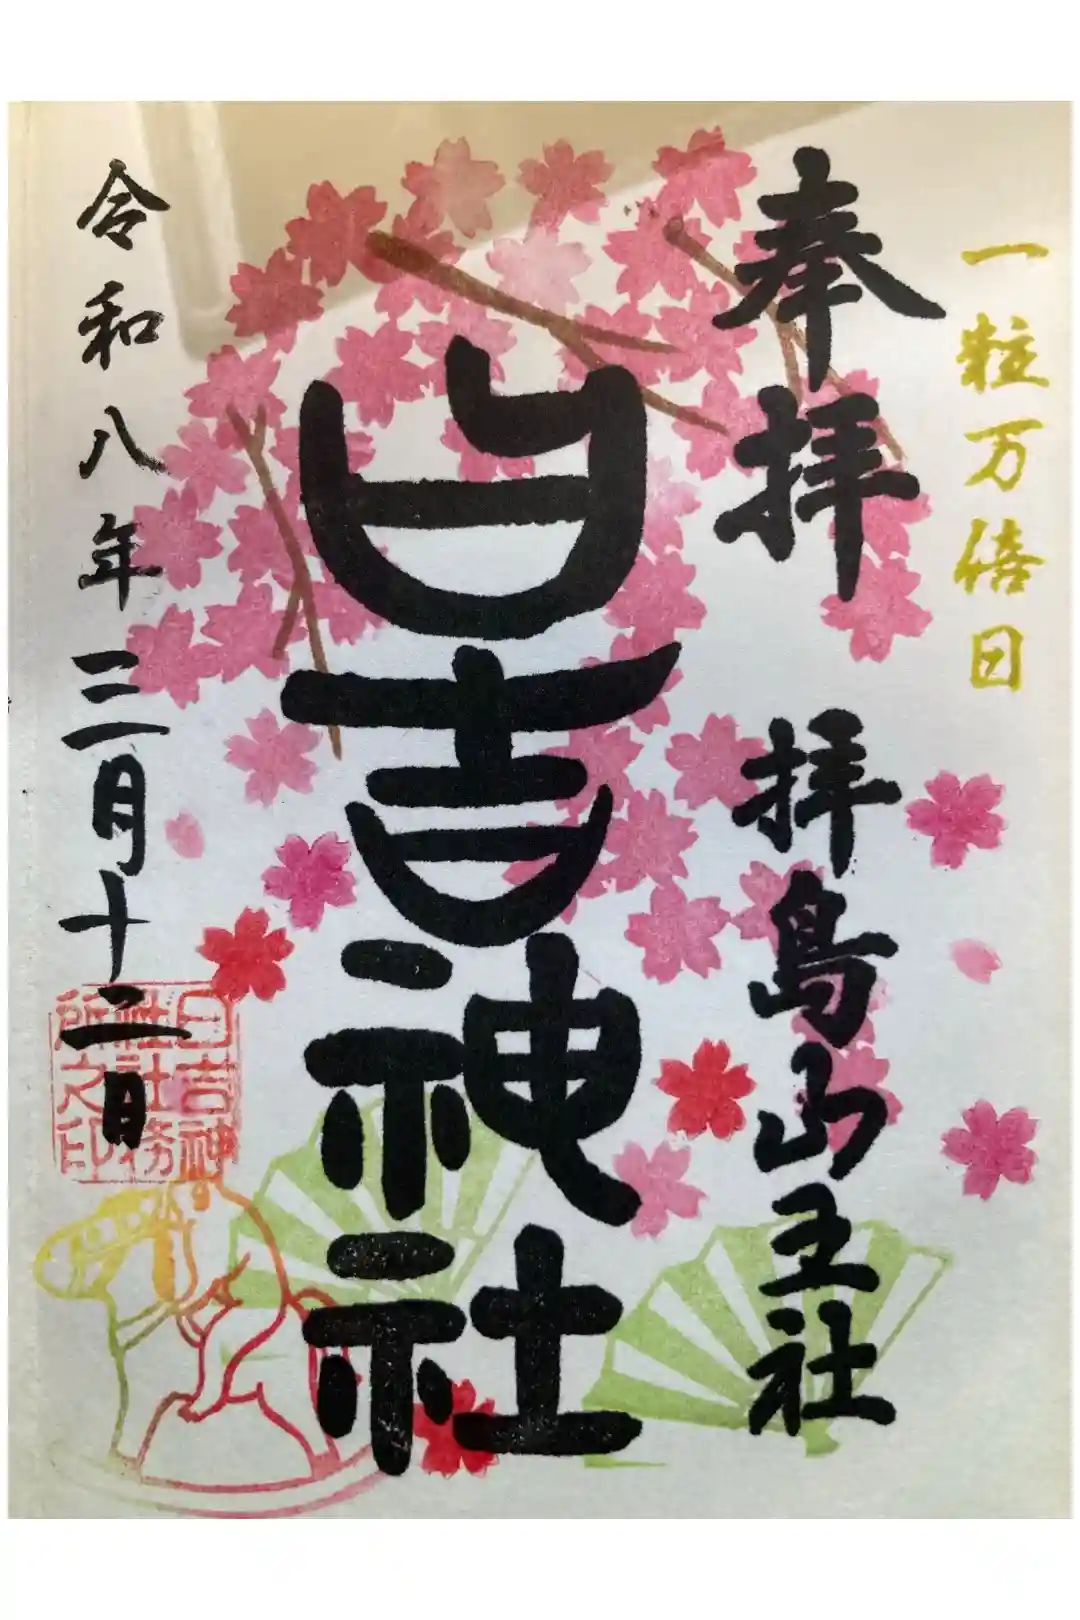 一粒万倍日
奉拝 拝島山王社
日吉神社
令和八年三月十二日
日吉神
社社務
所之印